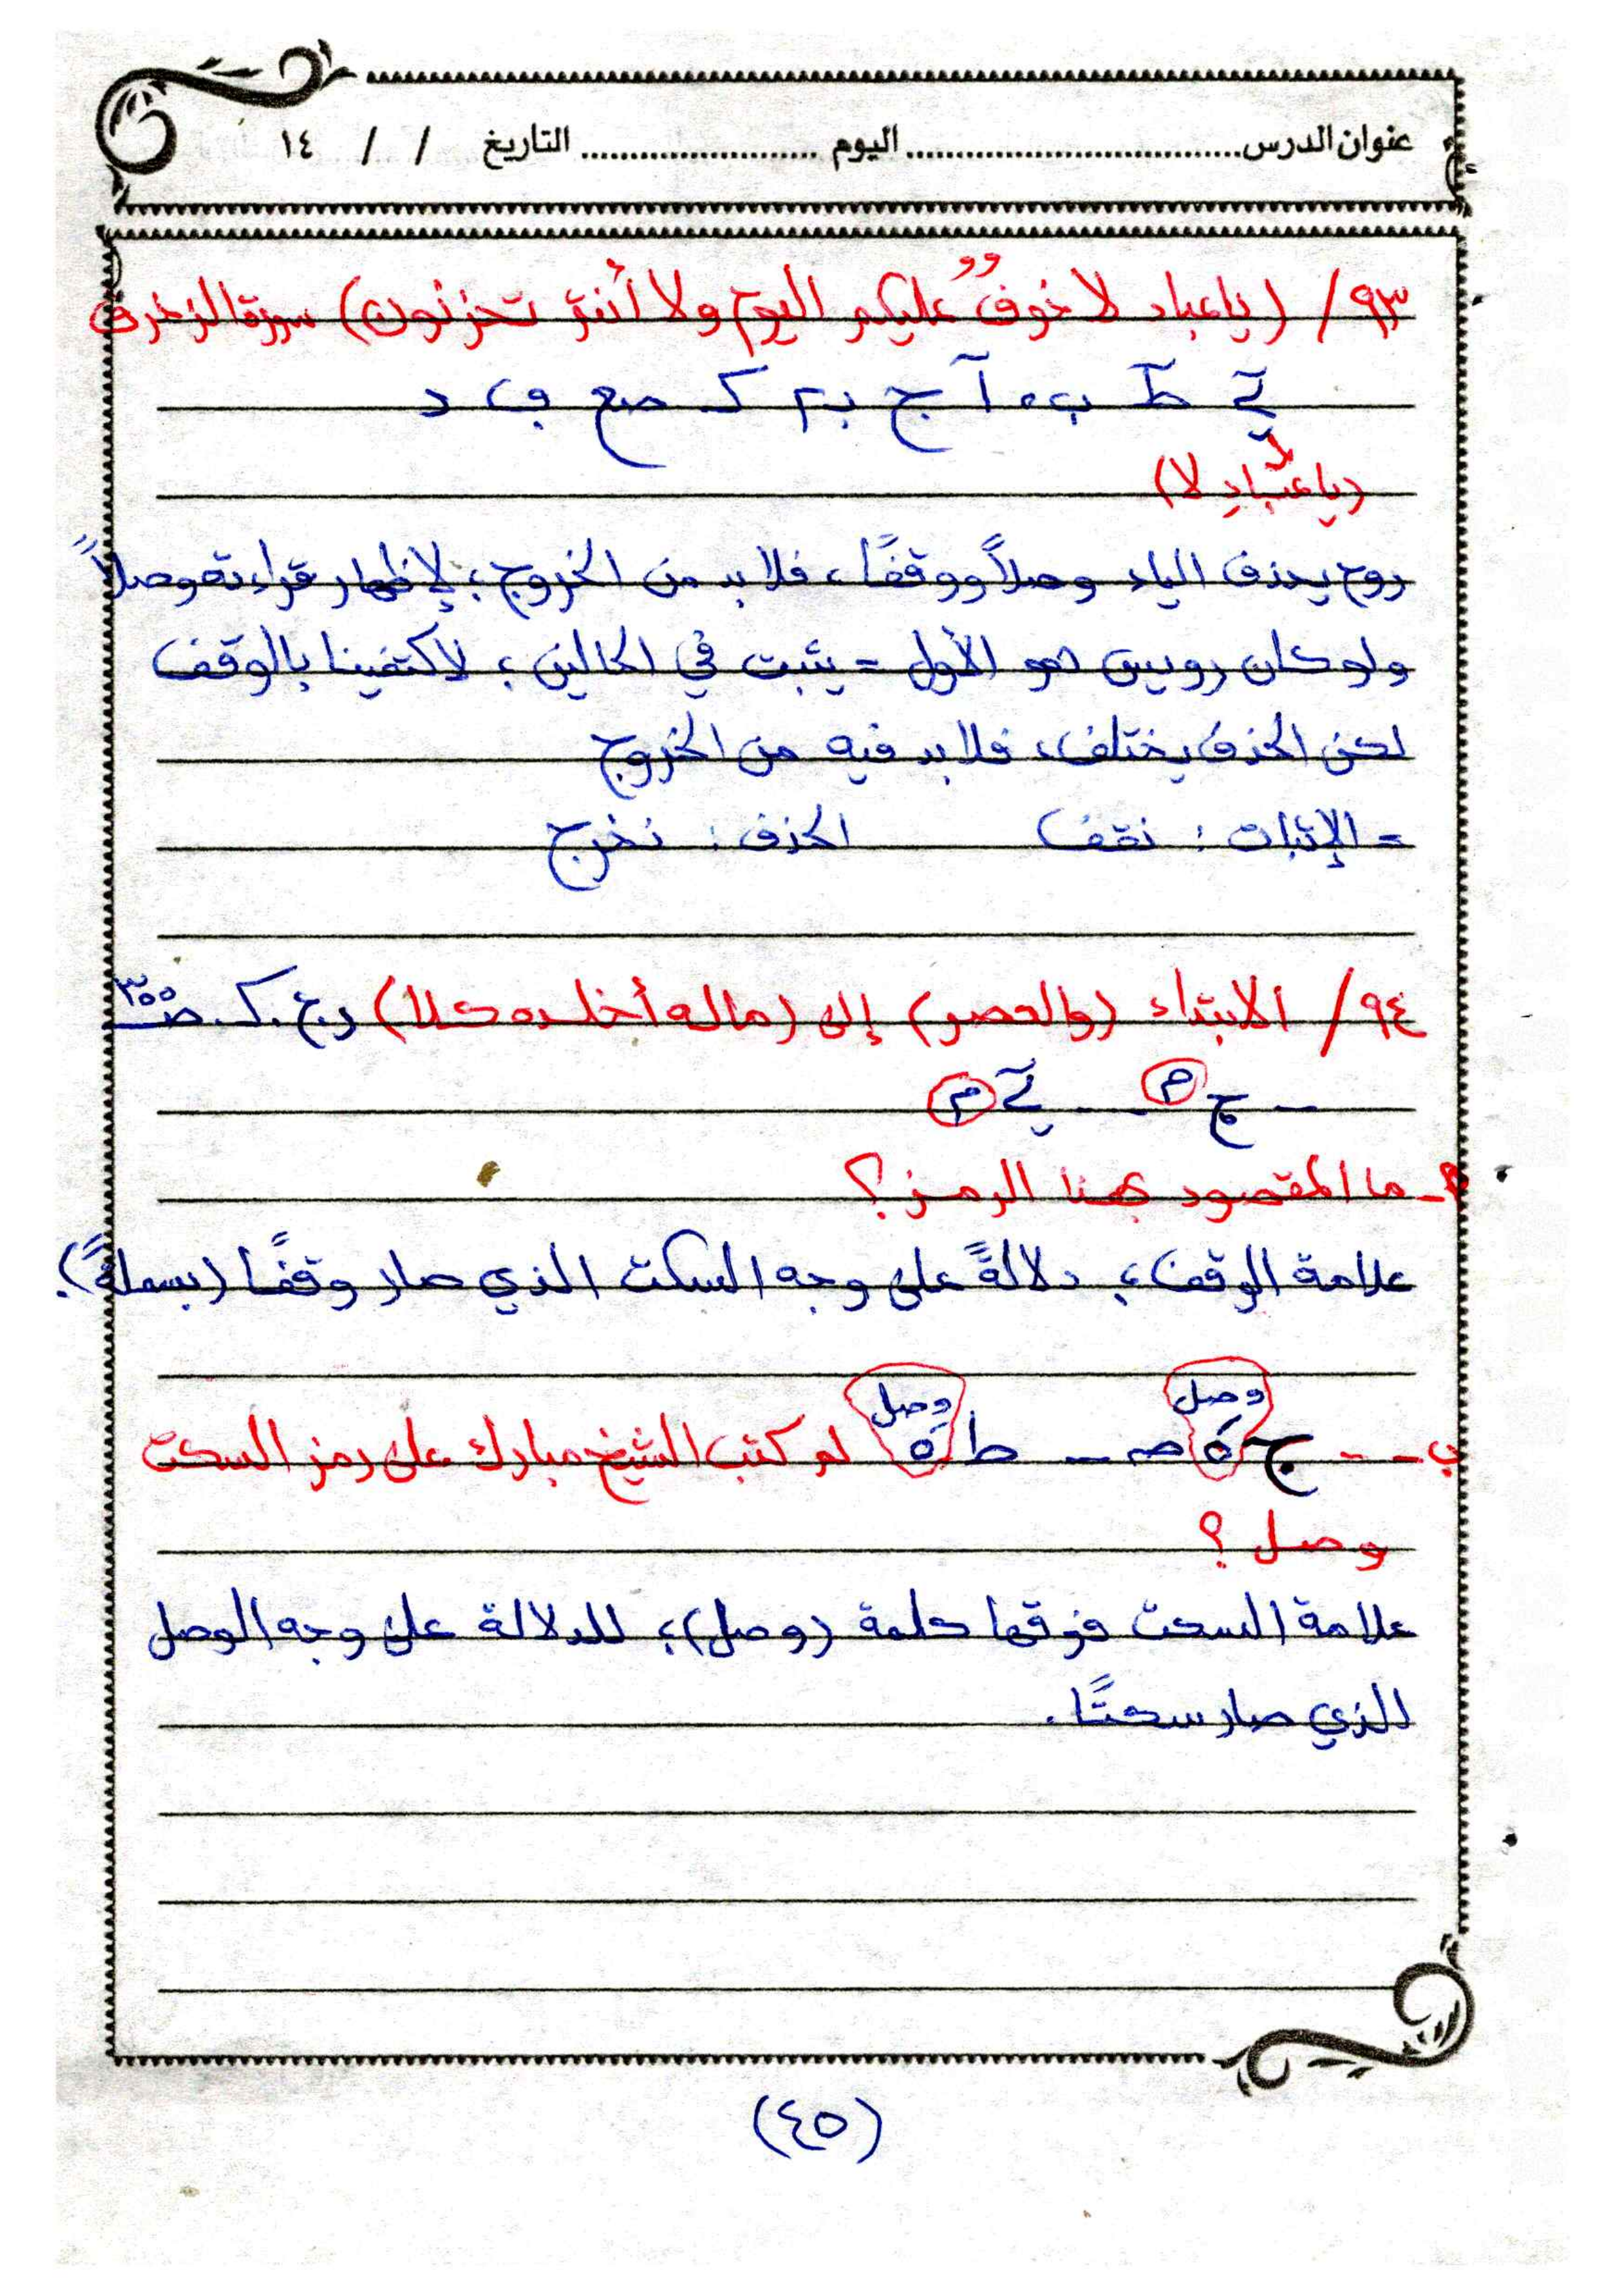 عنوان الدرس ................................ اليوم ........................ التاريخ / / ١٤
٩٣/ (ياعباد لا خوفٌ عليكم اليوم ولا أنتم تحزنون) سورة الزخرف
آ ج ك صع ف د
(ياعبادِ لا)
روح يحذف الياء وصلاً ووقفًا، فلا بد من الخروج؛ لإظهار قراءته وصلاً
ولو كان رويس هو الأول = يثبت في الحالين؛ لاكتفينا بالوقف
لكن الحذف يختلف، فلا بد فيه من الخروج
= الإثبات: نقف الحذف: نخرج
٩٤/ الابتداء (والعصر) إلى (ماله أخلده كلا) ك. ص٣٥٥
- ج م - - م
أ- ما المقصود بهذا الرمز؟
علامة الوقف؛ دلالةً على وجه السكت الذي صار وقفًا (بسملةً).
وصل وصل
ب - - ج ه - ط ه لو كتب الشيخ مبارك على رمز السكت
وصل؟
علامة السكت فوقها كلمة (وصل)؛ للدلالة على وجه الوصل
الذي صار سكتًا.
(٤٥)